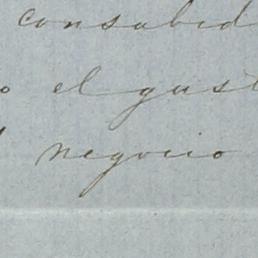 consabid
o el gust
negocio